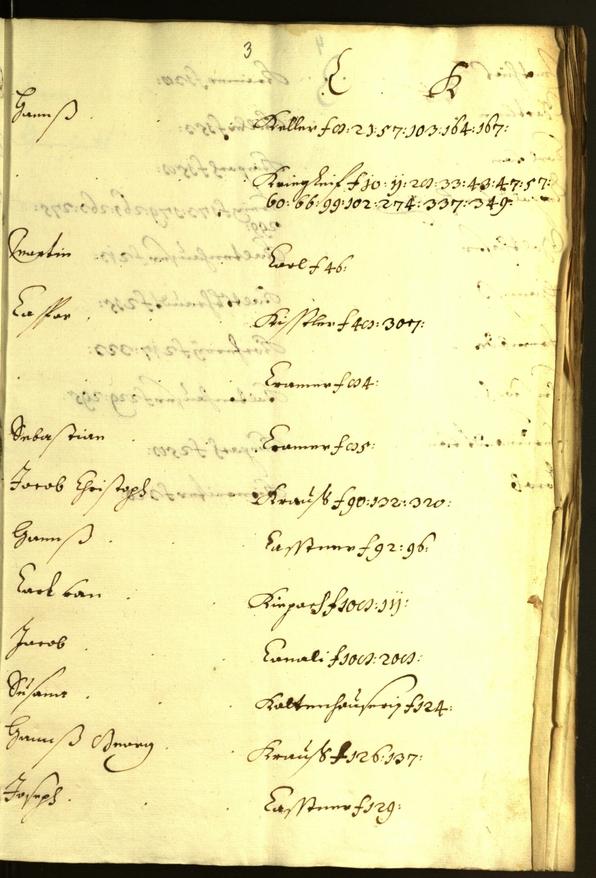 3
C K
Hannß Keller f 8: 21: 57: 103: 164: 167:
Kriegleif f 10: 11: 28: 33: 43: 47: 57:
60: 66: 99: 102: 274: 337: 349:
Martin Carl f 46:
Caspar Kisstler f 48: 307:
Cramer f 84:
Sebastian Cramer f 85:
Jacob Christoph Krauß f 90: 132: 320:
Hannß Casstner f 92: 96:
Carl van Kirpach f 108: 111:
Jacob Canali f 108: 208:
Susanna Kaltenhauserin f 124:
Hannß Georg Krauß f 126: 137:
Joseph Casstner f 129: